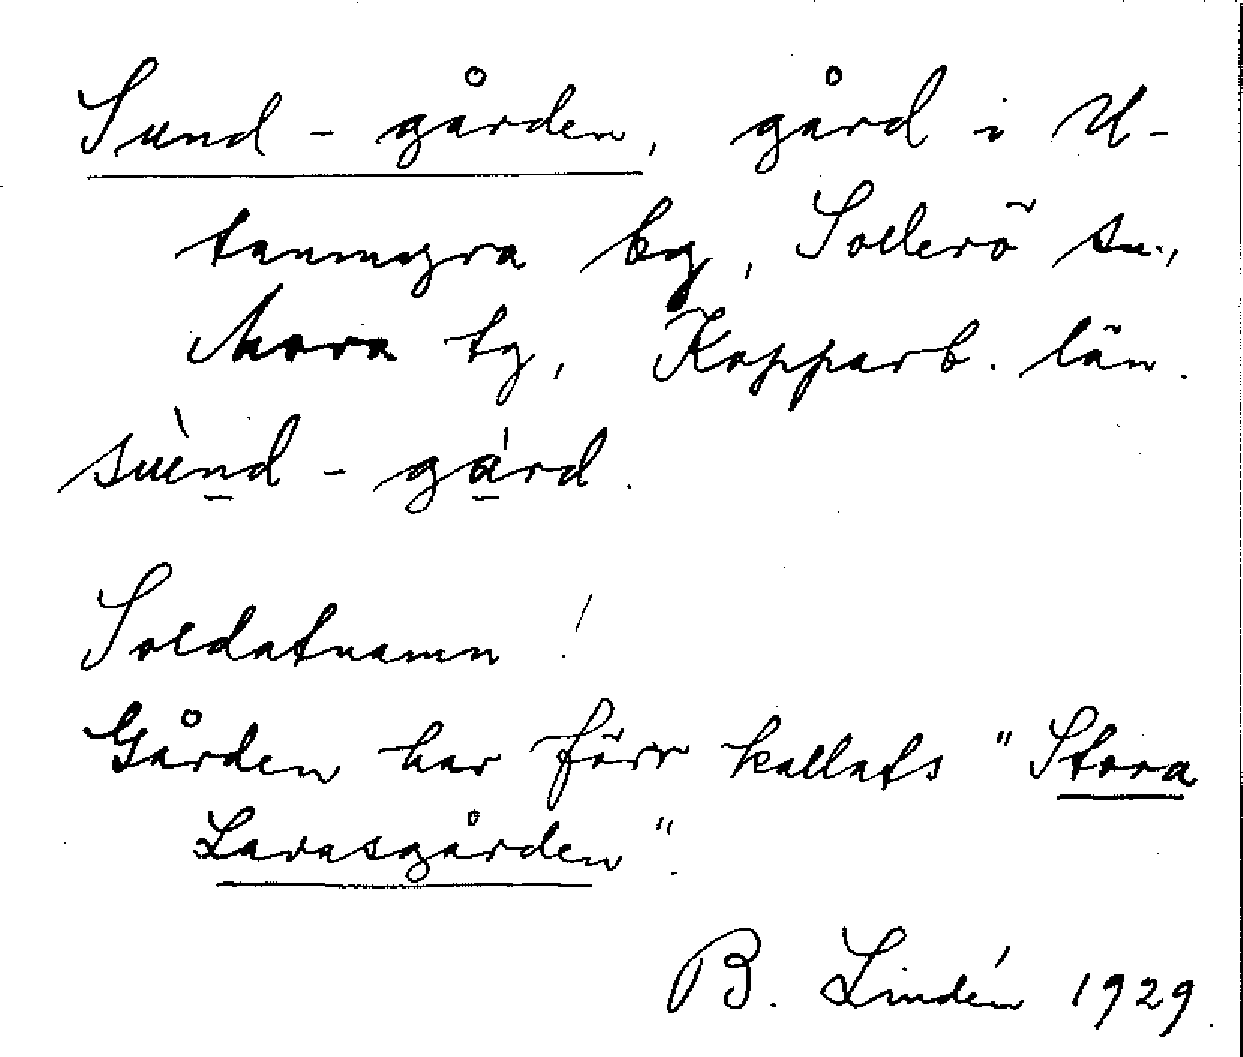 Sund - gården, gård i U-
tanmyra by, Sollerö sn.,
Mora tg, Kopparb. län.
suènd - gá̱rd.
Soldatnamn!
Gården har förr kallats "Stora
Larasgården".
B. Lindén 1929.